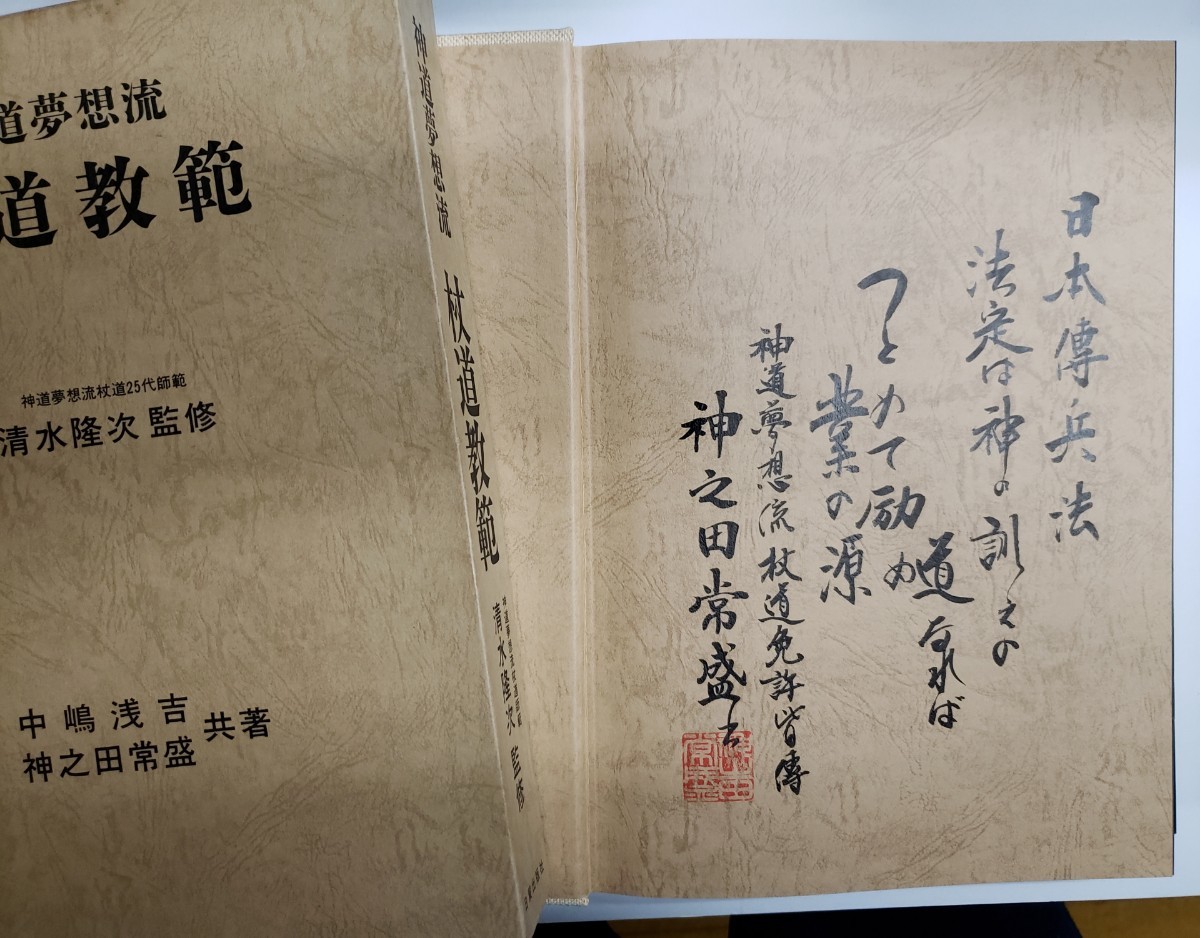 道夢想流
道教範
神道夢想流杖道25代師範
清水隆次 監修
中嶋浅吉
神之田常盛
共著
神道夢想流 杖道教範
清水隆次 監修
日本傳兵法
法定は神の訓えの
道なれば
つとめて励め
業の源
神道夢想流杖道免許皆傳
神之田常盛